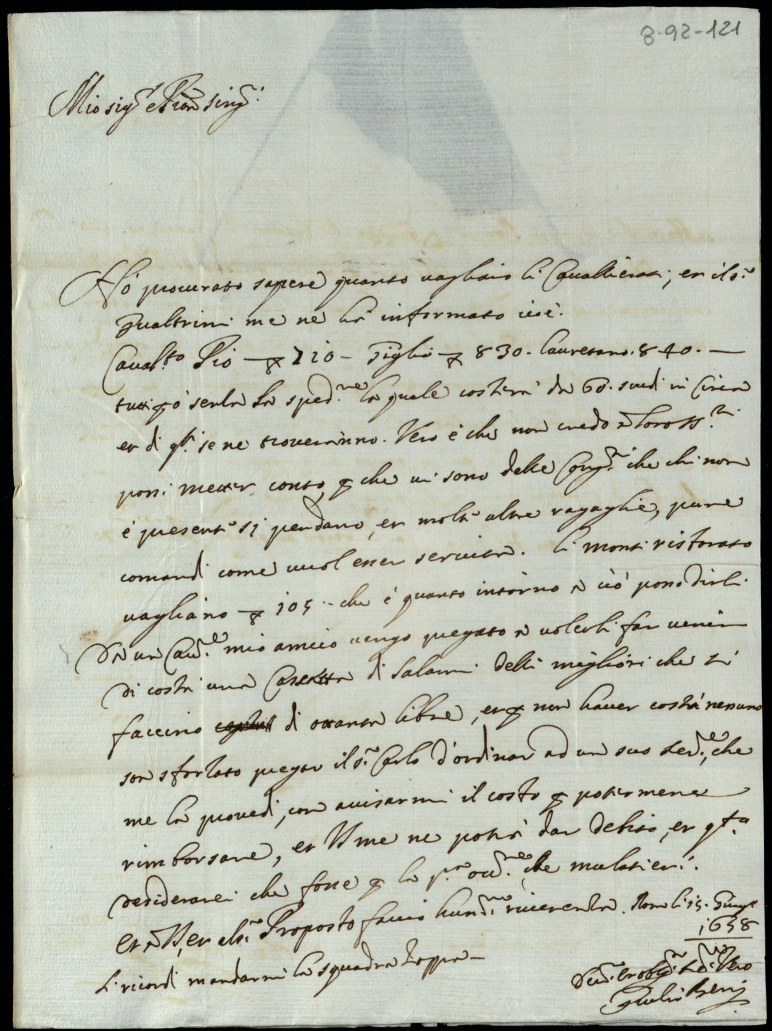 8-92-121
Mio sig.re e Pron sing.
Hò procurato sapere quanto vagliano li Cavallierati, et il s.r
Gualtrini me ne hà informato cioè.
Caval.to Pio — 710 — Giglio 830. Lauretano. 840. —
tutti senza la sped.ne la quale costerà da 60. scudi in Circa
et di q.ti se ne troveranno. Vero è che non credo a loro SS.ri
possi metter conto, che vi sono delle Cong. che chi non
è present si perdano, et molte altre ragaglie, pure
comandi come vuol esser servita. Li monti ristorato
vagliano 105 - che è quanto intorno a ciò posso dirli
Da un Cav.re mio amico vengo pregato a volerli far venir
di costì una Cassetta di salami delli migliori che si
faccino di ottanta libre, et non haver costì nessuno
son sforzato pregar il s.r Carlo d'ordinar ad un suo ser.re, che
me la provedi, con avisarmi il costo potermene
rimborsare, et VS me ne potrà dar debito, et q.ta
desiderarei che fosse la p.a che mulatieri.
Et a VS, et al s.r Proposto faccio humil.ma riverenza. Roma li 15. Giug.o
1658
Si ricordi mandarmi la squadra zoppa —
Di VS
Giulio